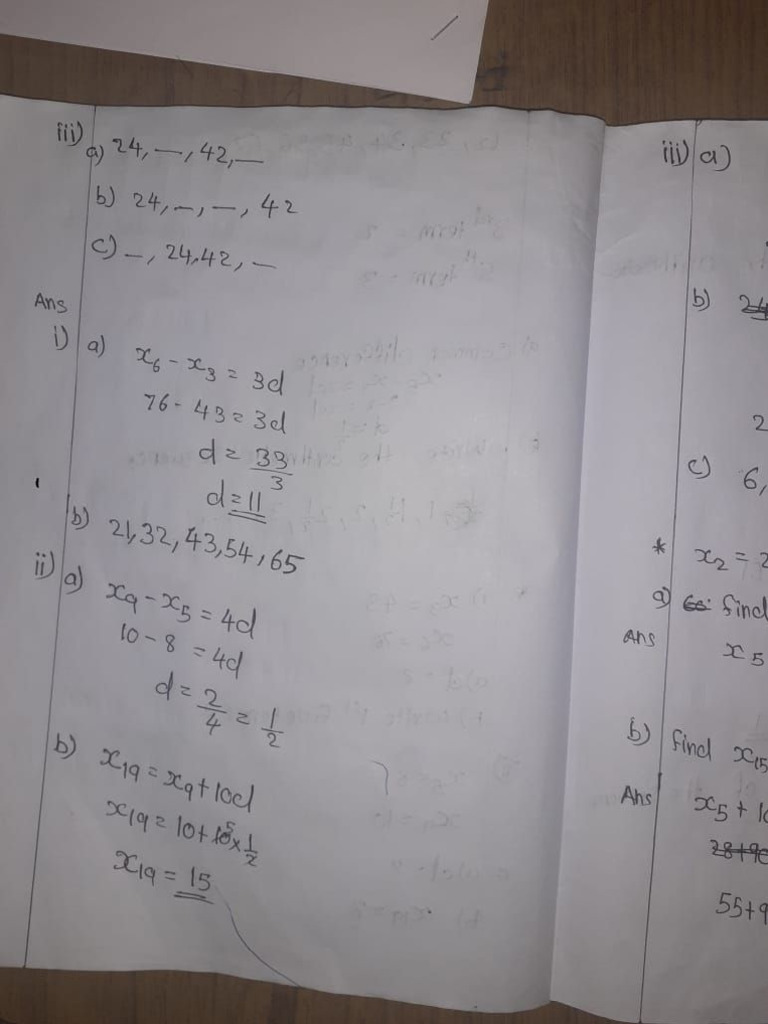 iii) a) 24, —, 42, —
b) 24, —, —, 42
c) —, 24, 42, —
Ans
i) a) x₆ - x₃ = 3d
76 - 43 = 3d
d = 33/3
d = 11
b) 21, 32, 43, 54, 65
ii) a) x₉ - x₅ = 4d
10 - 8 = 4d
d = 2/4 = 1/2
b) x₁₉ = x₉ + 10d
x₁₉ = 10 + 10⁵ × 1/2
x₁₉ = 15
iii) a)
b) 24
2
c) 6,
* x₂ = 2
a) find
Ans x₅
b) find x₁₅
Ans x₅ + 10
28+90
55+9